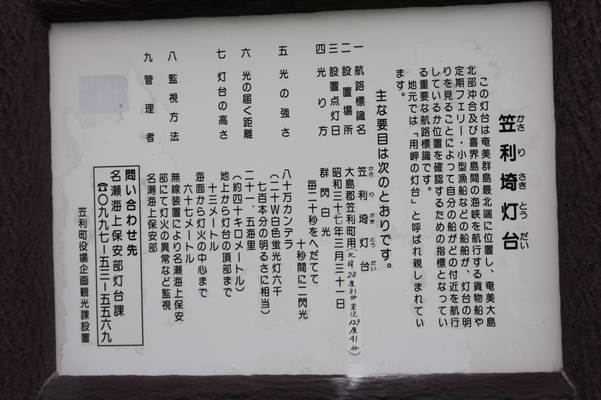 笠利埼灯台
かさりさきとうだい
この灯台は奄美群島最北端に位置し、奄美大島
北部沖合及び喜界島間の海峡を航行する貨物船や
定期フェリー・小型漁船などの船舶が、灯台の明
りを見ることによって自分の船がどの付近を航行
しているか位置を確認するための指標となってい
る重要な航路標識です。
地元では「用岬の灯台」と呼ばれ親しまれてい
ます。
主な要目は次のとおりです。
一 航路標識名 笠利埼灯台
かさりさきとうだい
二 設置場所 大島郡笠利町用 北緯28度31分 東経129度41分
三 設置点灯日 昭和三十七年三月三十一日
四 光り方 群閃白光
毎二十秒をへだてて
十秒間に二閃光
五 光の強さ 八十万カンデラ
（二十W白色蛍光灯六千
七百本分の明るさに相当）
六 光の届く距離 二十一・五海里
（約四十キロメートル）
七 灯台の高さ 地上から灯台の頂部まで
十三メートル
海面から灯火の中心まで
六十七メートル
八 監視方法 無線装置により名瀬海上保安
部にて灯火の異常など監視
九 管理者 名瀬海上保安部
問い合わせ先
名瀬海上保安部灯台課
☎〇九九七-五三-五五六九
笠利町役場企画観光課設置